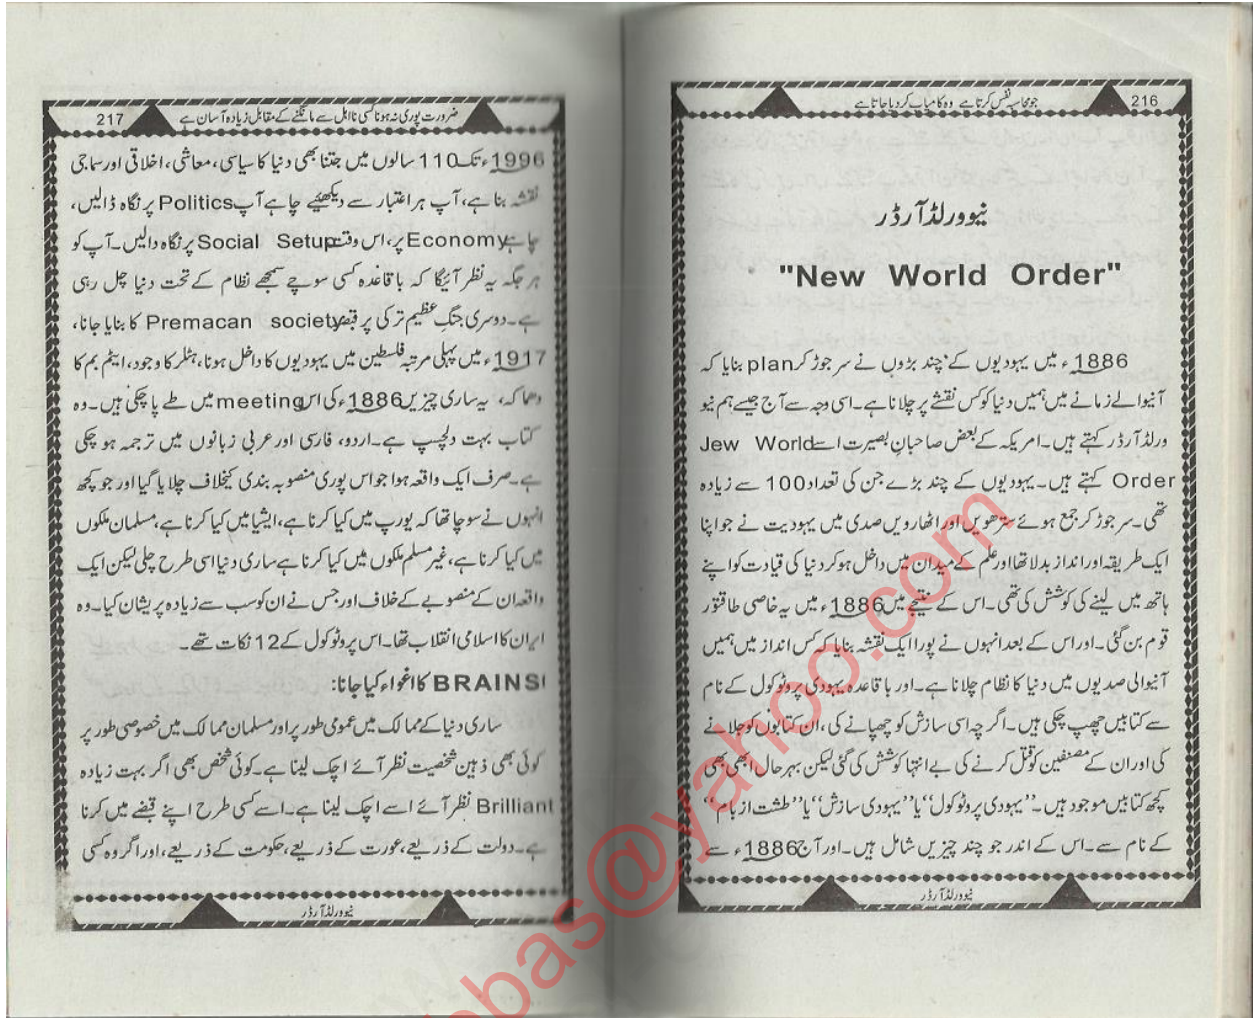 216
جو محاسبہ نفس کرتا ہے وہ کامیاب کر دیا جاتا ہے
نیو ورلڈ آرڈر
"New World Order"
1886ء میں یہودیوں کے چند بڑوں نے سر جوڑ کر plan بنایا کہ
آنیوالے زمانے میں ہمیں دنیا کو کس نقشے پر چلانا ہے۔ اسی وجہ سے آج جیسے ہم نیو
ورلڈ آرڈر کہتے ہیں۔ امریکہ کے بعض صاحبانِ بصیرت اسے Jew World
Order کہتے ہیں۔ یہودیوں کے چند بڑے جن کی تعداد 100 سے زیادہ
تھی۔ سر جوڑ کر جمع ہوئے سترھویں اور اٹھارویں صدی میں یہودیت نے جو اپنا
ایک طریقہ اور انداز بدلا تھا اور علم کے میدان میں داخل ہو کر دنیا کی قیادت کو اپنے
ہاتھ میں لینے کی کوشش کی تھی۔ اس کے نتیجے میں 1886ء میں یہ خاصی طاقتور
قوم بن گئی۔ اور اس کے بعد انہوں نے پورا ایک نقشہ بنایا کہ کس انداز میں ہمیں
آنیوالی صدیوں میں دنیا کا نظام چلانا ہے۔ اور باقاعدہ یہودی پروٹوکول کے نام
سے کتابیں چھپ چکی ہیں۔ اگرچہ اسی سازش کو چھپانے کی، ان کتابوں کو جلانے
کی اور ان کے مصنفین کو قتل کرنے کی بے انتہا کوشش کی گئی لیکن بہرحال ابھی بھی
کچھ کتابیں موجود ہیں۔ ’’یہودی پروٹوکول‘‘ یا ’’یہودی سازش‘‘ یا ’’طشت از بام‘‘
کے نام سے۔ اس کے اندر جو چند چیزیں شامل ہیں۔ اور آج 1886ء سے
نیو ورلڈ آرڈر
217
ضرورت پوری نہ ہونا کسی نا اہل سے مانگنے کے مقابل زیادہ آسان ہے
1996ء تک 110 سالوں میں جتنا بھی دنیا کا سیاسی، معاشی، اخلاقی اور سماجی
نقشہ بنا ہے، آپ ہر اعتبار سے دیکھئیے چاہے آپ Politics پر نگاہ ڈالیں،
چاہے Economy پر، اس وقت Social Setup پر نگاہ دالیں۔ آپ کو
ہر جگہ یہ نظر آئیگا کہ باقاعدہ کسی سوچے سمجھے نظام کے تحت دنیا چل رہی
ہے۔ دوسری جنگِ عظیم ترکی پر قبضہ Premacan society کا بنایا جانا،
1917ء میں پہلی مرتبہ فلسطین میں یہودیوں کا داخل ہونا، ہٹلر کا وجود، ایٹم بم کا
دھماکہ، یہ ساری چیزیں 1886ء کی اس meeting میں طے پا چکی ہیں۔ وہ
کتاب بہت دلچسپ ہے۔ اردو، فارسی اور عربی زبانوں میں ترجمہ ہو چکی
ہے۔ صرف ایک واقعہ ہوا جو اس پوری منصوبہ بندی کیخلاف چلایا گیا اور جو کچھ
انہوں نے سوچا تھا کہ یورپ میں کیا کرنا ہے، ایشیا میں کیا کرنا ہے، مسلمان ملکوں
میں کیا کرنا ہے، غیر مسلم ملکوں میں کیا کرنا ہے ساری دنیا اسی طرح چلی لیکن ایک
واقعہ ان کے منصوبے کے خلاف اور جس نے ان کو سب سے زیادہ پریشان کیا۔ وہ
ایران کا اسلامی انقلاب تھا۔ اس پروٹوکول کے 12 نکات تھے۔
BRAINS کا اغواء کیا جانا:
ساری دنیا کے ممالک میں عمومی طور پر اور مسلمان ممالک میں خصوصی طور پر
کوئی بھی ذہین شخصیت نظر آئے اچک لینا ہے۔ کوئی شخص بھی اگر بہت زیادہ
Brilliant نظر آئے اسے اچک لینا ہے۔ اسے کسی طرح اپنے قبضے میں کرنا
ہے۔ دولت کے ذریعے، عورت کے ذریعے، حکومت کے ذریعے، اور اگر وہ کسی
نیو ورلڈ آرڈر
bas@yahoo.com